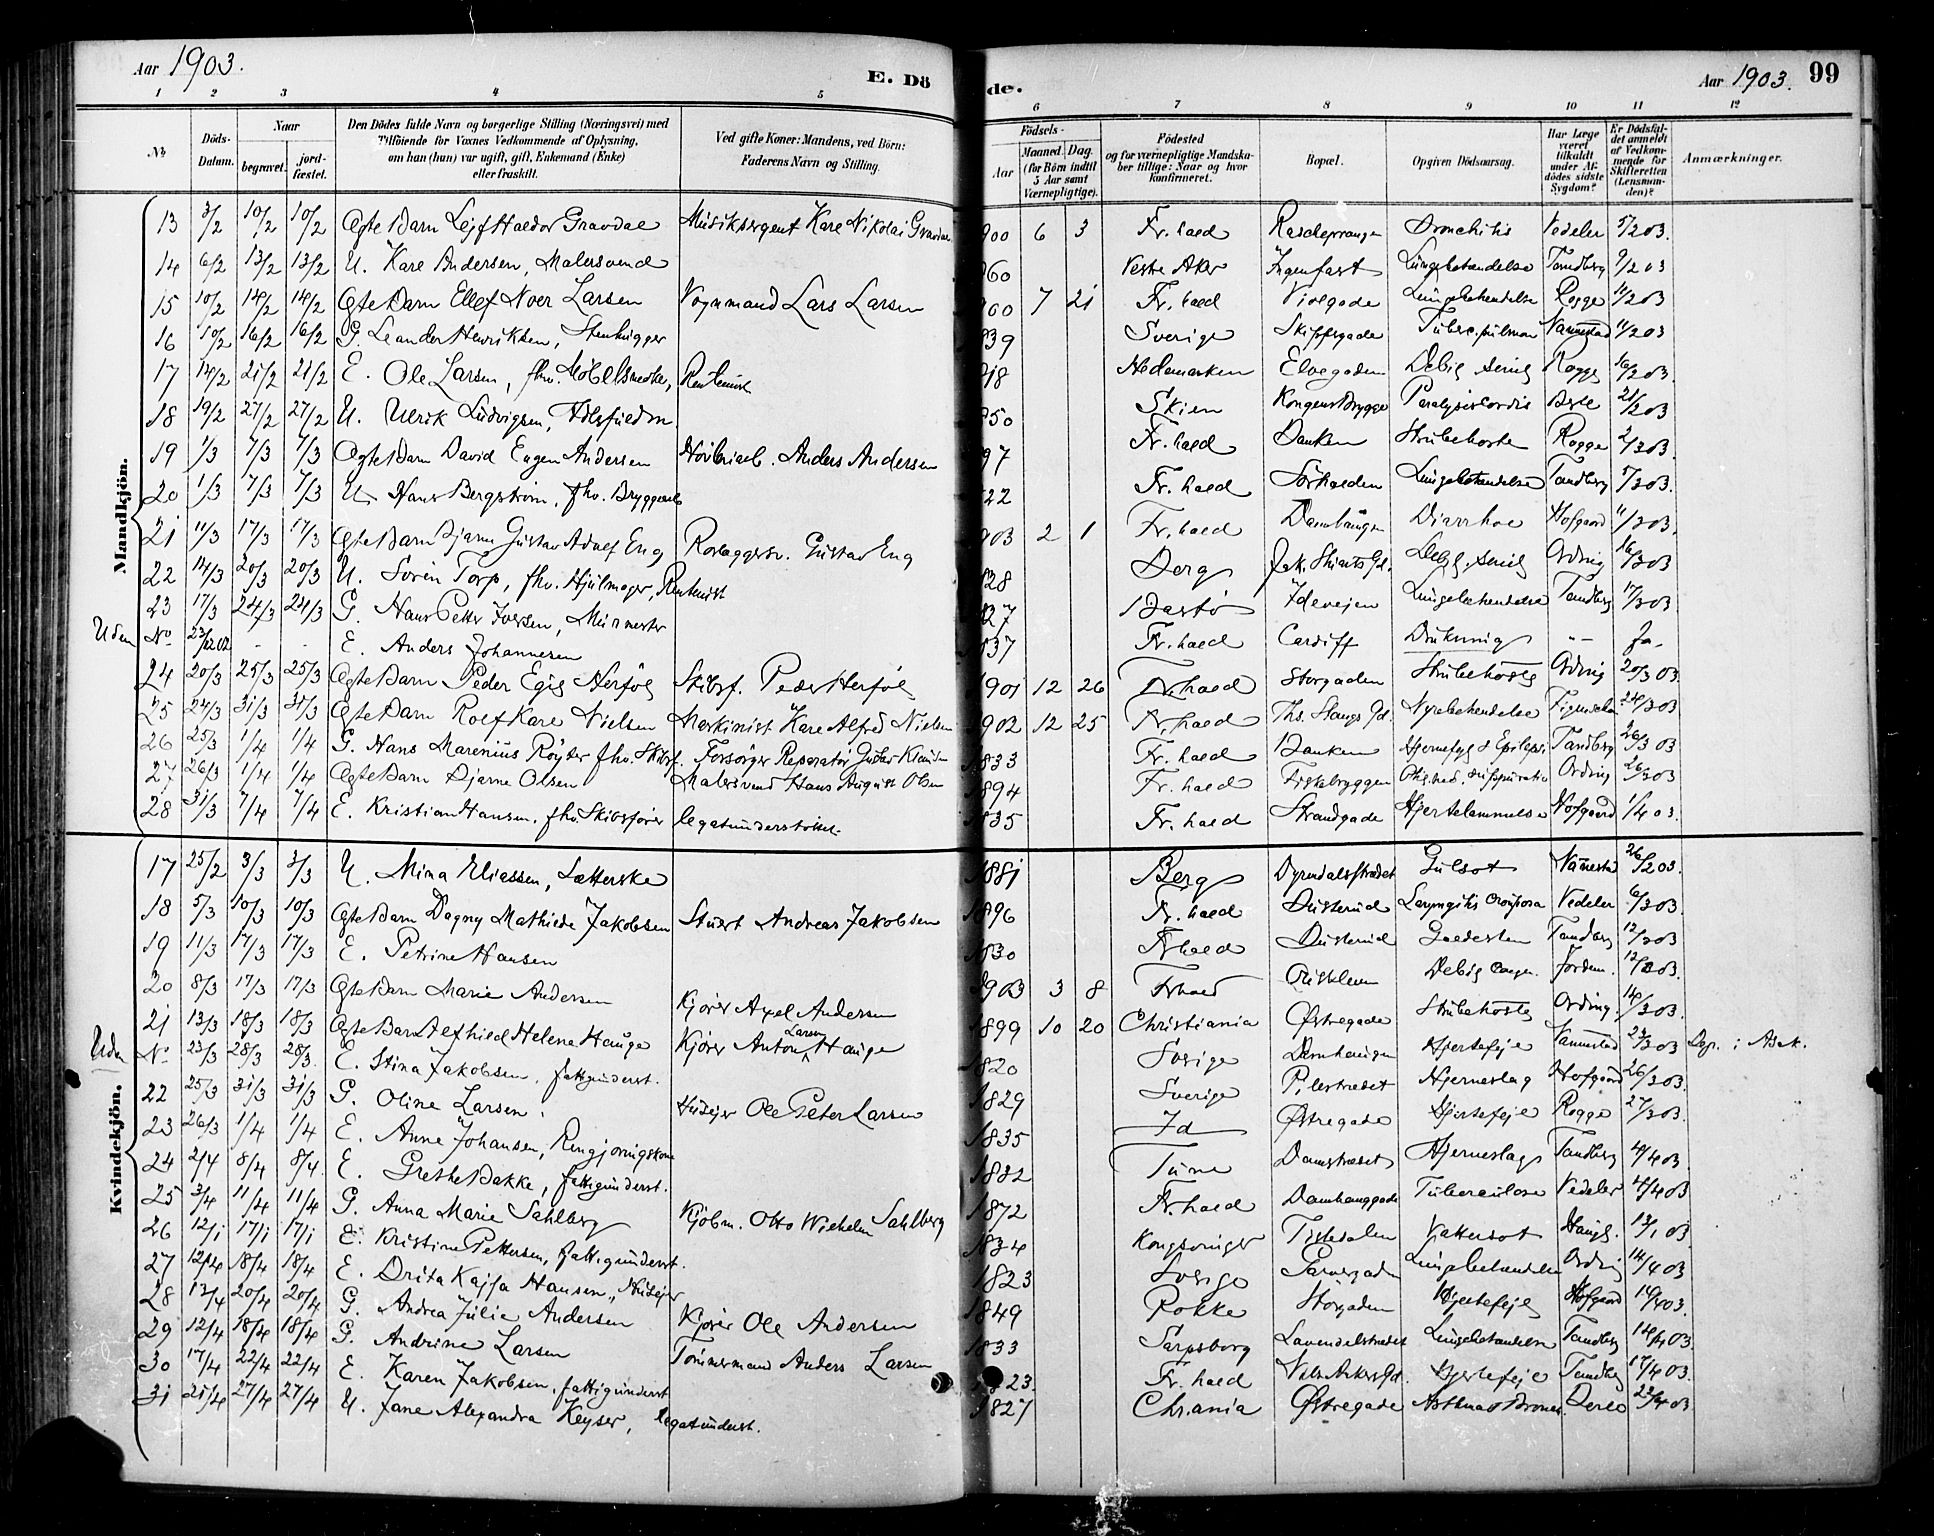 Aar 1903. E. Dö de. Aar 1903. 99
1 2 3 4 5 6 7 8 9 10 11 12
No. Döds-Datum. Naar begravet. jordfæstet. Den Dödes fulde Navn og borgerlige Stilling (Næringsvei) med Tilföiende for Voxnes Vedkommende af Oplysning, om han (hun) var ugift, gift, Enkemand (Enke) eller fraskilt. Ved gifte Koner: Mandens, ved Börn: Faderens Navn og Stilling. Födsels- Aar Maaned. Dag. (for Börn indtil 5 Aar samt Værnepligtige). Födested og for værnepligtige Mandskaber tillige: Naar og hvor konfirmeret. Bopæl. Opgiven Dödsaarsag. Har Læge været tilkaldt under Afdödes sidste Sygdom? Er Dödsfaldet anmeldt af Vedkommende for Skifteretten (Lensmanden)? Anmærkninger.
Mandkjön.
13 3/2 10/2 10/2 Ægte Barn Lejf Haldor Gravdal Musiksergent Karl Nikolai Gravdal 900 6 3 Fr.hald Bronchitis Vedeler 5/2 03.
14 6/2 13/2 13/2 U. Karl Andersen, Malersvend 860 Vestre Aker Ingen fast Lungebetændelse Tandberg 9/2 03
15 10/2 14/2 14/2 Ægte Barn Ellef Noer Larsen Vognmand Lars Larsen 7 21 Fr.hald Violgade Lungebetændelse Rogge 11/2 03
16 10/2 16/2 16/2 G. Leander Henriksen, Stenhugger 839 Sverige Skippergade Tuberc. pulmon Vannestad 11/2 03
17 14/2 21/2 21/2 E. Ole Larsen, fhv. Möbelsnedker, Rentenist 818 Hedemarken Elvegaden Debil. senil Rogge 16/2 03.
18 19/2 27/2 27/2 U. Ulrik Ludvigsen, 850 Skien Kongens Brygge Paralysis cordis 21/2 03
19 1/3 7/3 7/3 Ægte Barn David Eugen Andersen Anders Andersen 97 Fr.hald Banken Strubehoste Rogge 2/3 03
20 1/3 7/3 7/3 U. Hans Bergström, fhv. Bryggearb 822 Fr.hald Sörhalden Lungebetændelse Tandberg 5/3 03.
21 11/3 17/3 17/3 Ægte Barn Bjarne Gustav Adolf Eng Gustav Eng 903 2 1 Fr.hald Diarrhoe Hofgaard 11/3 03
22 14/3 20/3 20/3 U. Sören Torp, fhv. Hjulmager, Rentenist 828 Berg Debil. senil Ording 16/3 03
23 17/3 24/3 24/3 G. Hans Petter Iversen, Murmester 827 Idevejen Lungebetændelse Tandberg 17/3 03
Uden No 23/12 02 - - E. Anders Johannesen 837 Fr.hald Cardiff Drukning -,- Ja.
24 20/3 25/3 25/3 Ægte Barn Peder Egil Herföl Skibsf. Peder Herföl 1901 12 26 Fr.hald Storgaden Strubehoste Ording 20/3 03
25 24/3 31/3 31/3 Ægte Barn Rolf Karl Nielsen Maskinist Karl Alfred Nielsen 1902 12 25 Fr.hald Ths. Stangs Gd. Nyrebetændelse 24/3 03
26 25/3 1/4 1/4 G. Hans Marenius Röyder fhv. Skibsf. Forsörger Reparatör 1833 Fr.hald Banken Hjernesyg. & Epilepsi Tandberg 26/3 03
27 26/3 1/4 1/4 Ægte Barn Bjarne Olsen Malersvend Hans August Olsen 1894 Fr.hald Fiskebryggen Ording 26/3 03
28 31/3 7/4 7/4 E. Kristian Hansen, fhv. Skibsförer legatunderstöttet. 1835 Fr.hald Strandgade Hjertelammelse Hofgaard 1/4 03.
Kvindekjön.
17 25/2 3/3 3/3 U. Mina Eliassen, Sætterske 1881 Berg Dyrendalsstrædet Gulsot Vannestad 26/2 03.
18 5/3 10/3 10/3 Ægte Barn Dagny Mathilde Jakobsen Stuert Andreas Jakobsen 1896 Fr.hald Busterud Laryngitis crouposa Vedeler 6/3 03.
19 11/3 17/3 17/3 E. Petrine Hansen 1830 Fr.hald Busterud Galdesten Tandberg 12/3 03
20 8/3 17/3 17/3 Ægte Barn Marie Andersen Kjörer Axel Andersen 1903 3 8 Fr.hald Debil. congen. Jordem. 12/3 03.
21 13/3 18/3 18/3 Ægte Barn Alfhild Helene Hauge Kjörer Anton Larsen Hauge 1899 10 20 Christiania Östregade Strubehoste Ording. 14/3 03.
Uden No 23/3 28/3 28/3. E. Stina Jakobsen, fattigunderst. 1820 Sverige Damhaugen Hjertefejl Vannestad 24/3 03 i Asak.
22 25/3 31/3 31/3 G. Oline Larsen. Husejer Ole Peter Larsen 1829 Sverige Pilestrædet Hjerneslag Hofgaard 26/3 03.
23 26/3 1/4 1/4 E. Anne Johansen, Rengjöringskone 1835 Id Östregade Hjertefejl Rogge 27/3 03.
24 2/4 8/4 8/4. E. Grethe Bakke, fattigunderst. 1832 Tune Damstrædet Hjerneslag Tandberg 4/4 03
25 3/4 11/4 11/4 G. Anna Marie Sahlberg Kjöbm. Otto Wilhelm Sahlberg 1872 Fr.hald Damhauggade Tuberculose Vedeler 4/4 03
26 12/1 17/1 17/1 E. Kristine Pettersen, fattigunderst. 1834 Kongsvinger Tistedalen Vattersot Haugl. 13/1 03
27 12/4 18/4 18/4 E. Brita Kajsa Hansen, Husejer 1823 Sverige Lungebetændelse Ording 14/4 03
28 13/4 20/4 20/4 G. Andrea Julie Andersen Kjörer Ole Andersen 1849 Rokke Storgaden Hjertefejl Hofgaard 14/4 03.
29 12/4 18/4 18/4 G. Andrine Larsen Tömmermand Anders Larsen 1833 Sarpsborg Lavendelstrædet Lungebetændelse Tandberg 14/4 03
30 17/4 22/4 22/4 E. Karen Jakobsen, fattigunderst 1823. Fr.hald Hjertefejl Tandberg 17/4 03.
31 21/4 27/4 27/4 U. Jane Alexandra Keyser, legatunderst. 1827 Chr.ania Östregade Asthma & Bronch. 22/4 03